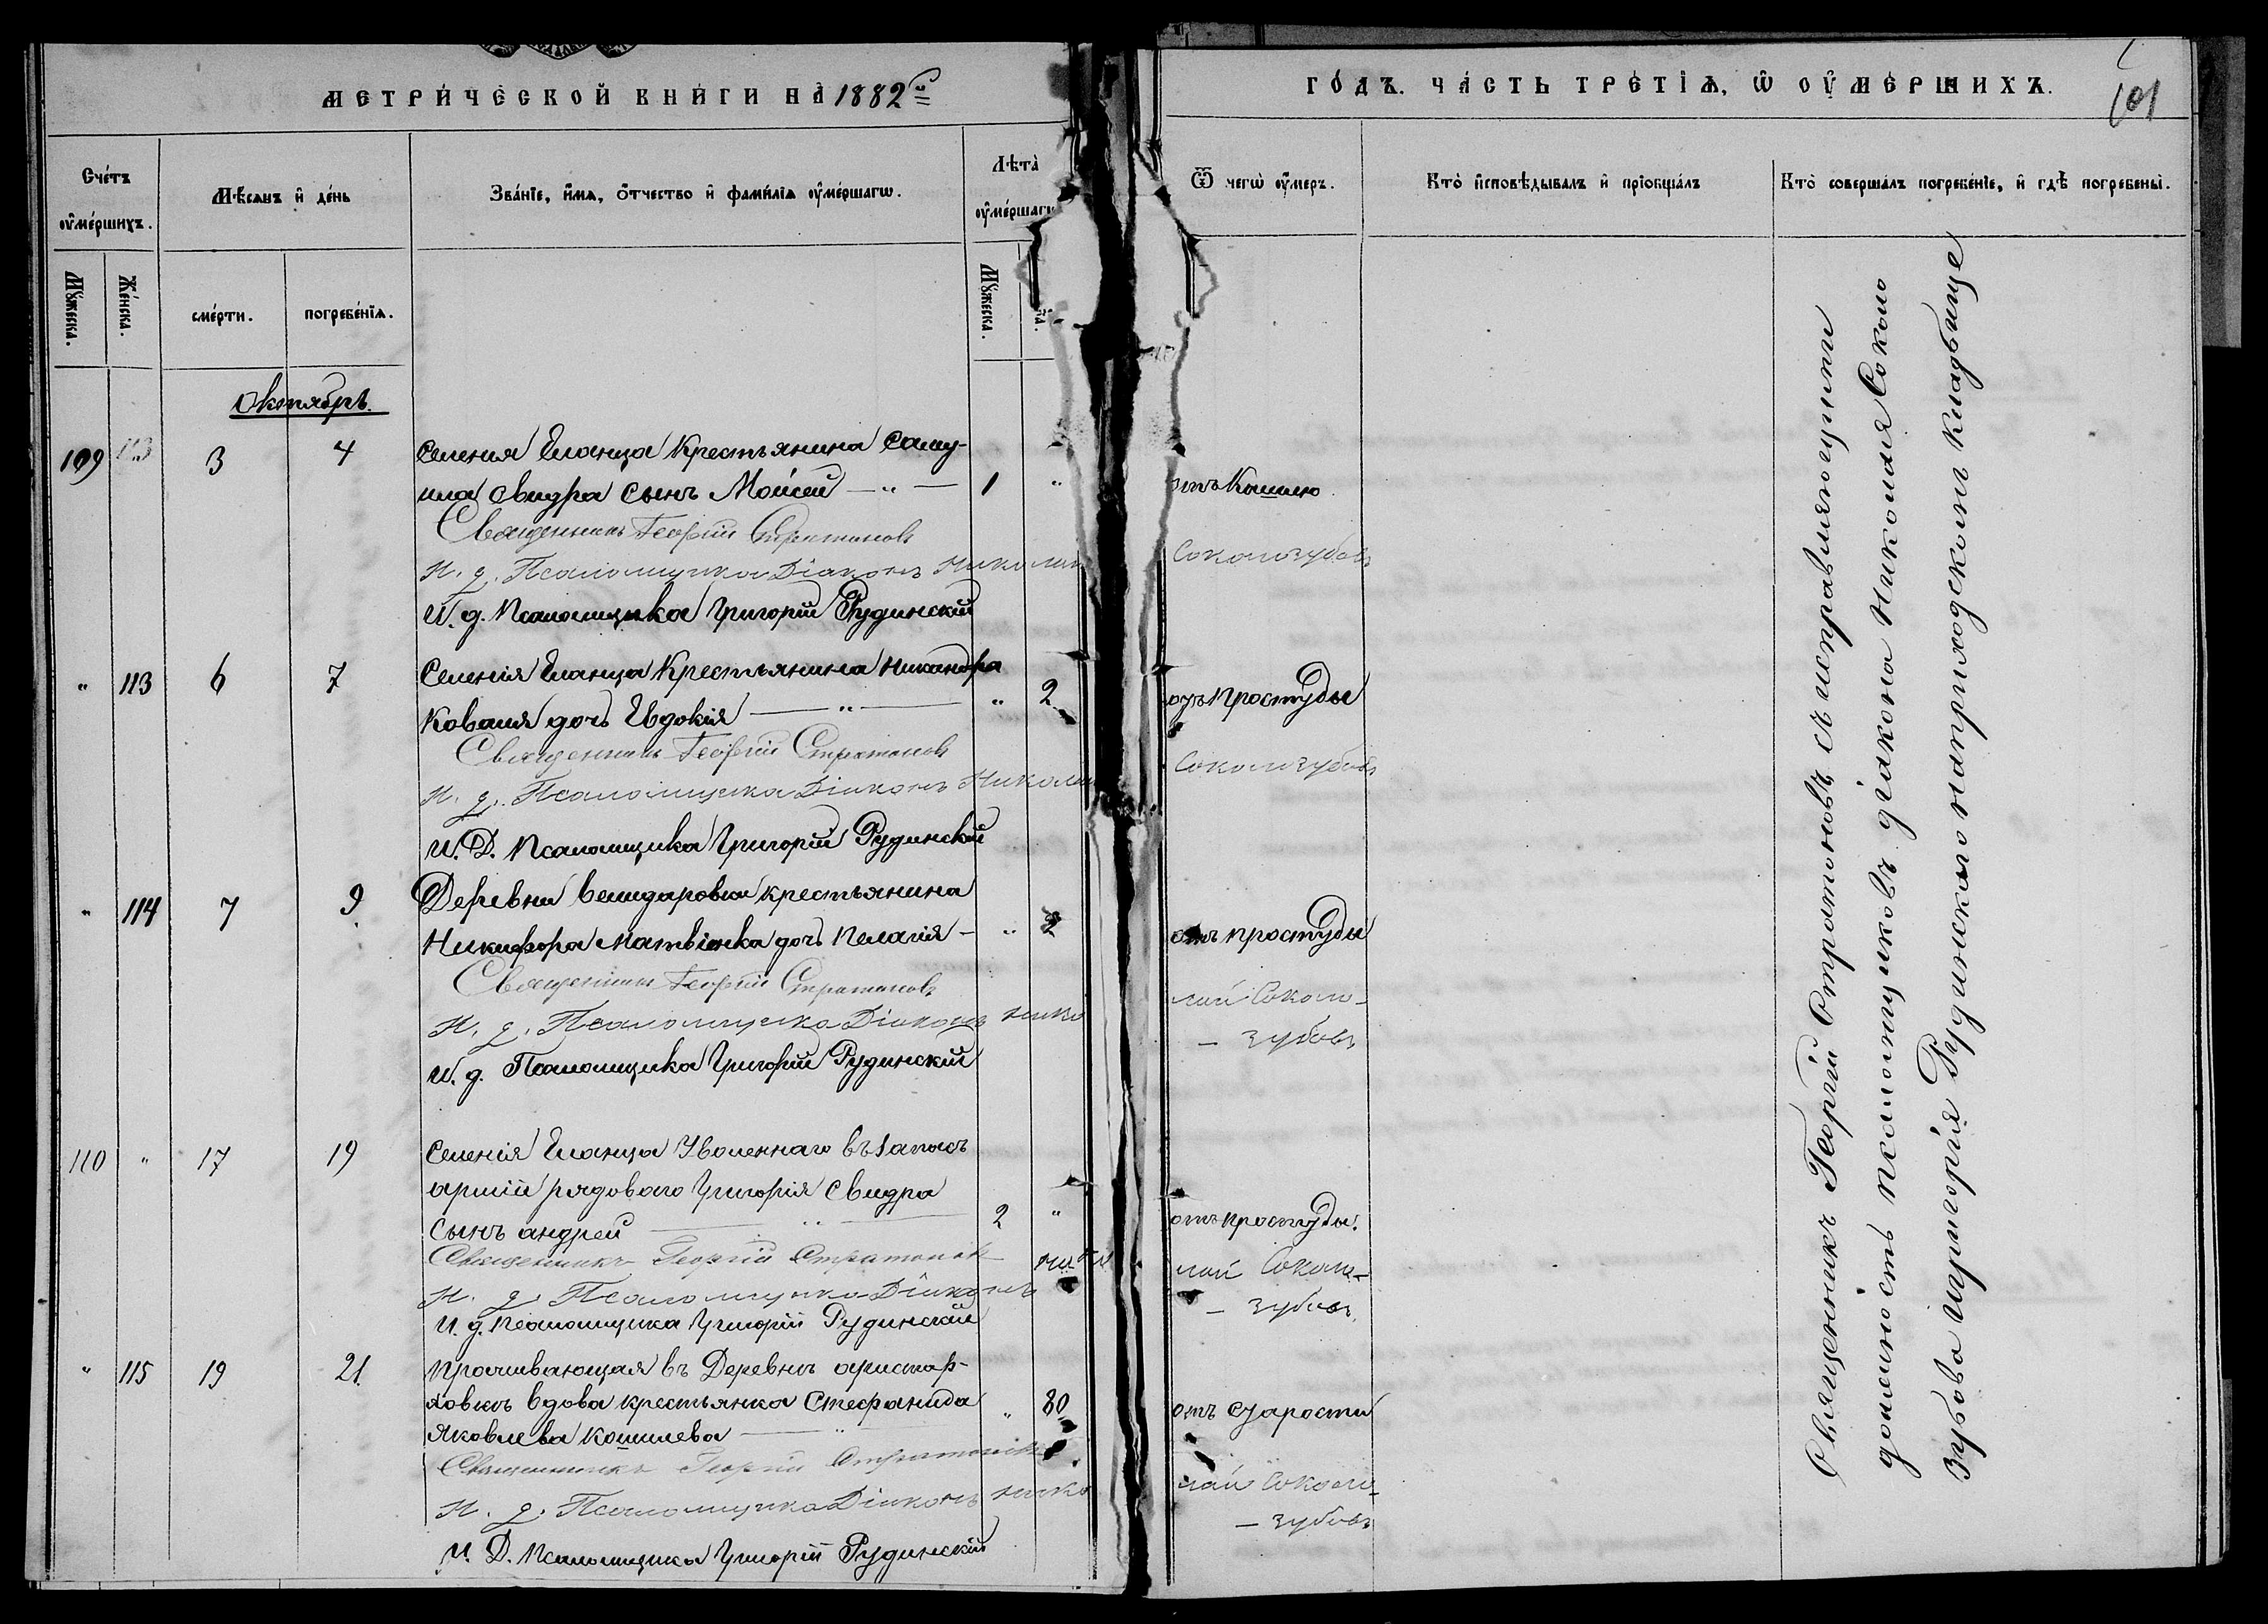 МЕТРИ́ЧЕСКОЙ КНИ́ГИ НА̀ 1882й
ГО́ДЪ. ЧА́СТЬ ТРЕ́ТІѦ, Ѡ҆ ОУ҆МЕ́РШИХЪ.
101
Сче́тъ оу҆ме́ршихъ.
Мѣ́сяцъ и҆ де́нь
Зва́нїе, и҆́мѧ, ѻ҆́тчество и҆ фами́лїѧ оу҆ме́ршагѡ.
Лѣта̀ оу҆ме́ршагѡ
Ѿ чегѡ̀ оу҆́меръ.
Кто̀ и҆сповѣ́дывалъ и҆ прїобща́лъ
Кто̀ соверша́лъ погребе́нїе, и҆ гдѣ̀ погребены̀.
Мꙋ́жеска.
Же́нска.
сме́рти.
погребе́нїѧ.
Мꙋ́жеска.
Октябрь.
109 3 4 Селенія Еланца Крестьянина Саму-
ила Свидра сынъ Моисей — " — 1 " отъ Кашлю
Священникъ Георгій Стратоновъ
И. д. Псаломщика Діаконъ Николай Соколозубовъ
И. д. Псаломщика Григорій Рудинскій
" 113 6 7 Селенія Еланца Крестьянина Никанора
Коваля дочь Евдокія — " — " 2 отъ простуды
Священникъ Георгій Стратоновъ
И. д. Псаломщика Діаконъ Николай Соколозубовъ
И. Д. Псаломщика Григорій Рудинскій
" 114 7 9 Деревни крестьянина
Никифора Матвіенка дочь Пелагія — " отъ простуды
Священникъ Георгій Стратоновъ
И. д. Псаломщика Діаконъ Нико лай Соколо-
— зубовъ
И. д. Псаломщика Григорій Рудинскій
110 " 17 19 Селенія Еланца Уволеннаго въ запасъ
арміи рядоваго Григорія Свидра
сынъ андрей — " — 2 " отъ простуды.
Священникъ Георгій Стратоновъ
И. д. Псаломщика Діаконъ Нико лай Соколо-
— зубовъ
И. д. Псаломщика Григорій Рудинскій
" 115 19 21 Проживающая въ Деревнѣ аристар-
ховкѣ вдова крестьянка Стефанида " 80 отъ старости
Яковлева Кошилева — "
Священникъ Георгій Стратоновъ
И. д. Псаломщика Діаконъ Нико лай Соколо-
— зубовъ
И. Д. Псаломщика Григорій Рудинскій
Священникъ Георгій Стратоновъ съ исправляющими
должность псаломщиковъ діакона Николая Соколо
зубова и Григорія Рудинскаго на приходскомъ кладбище